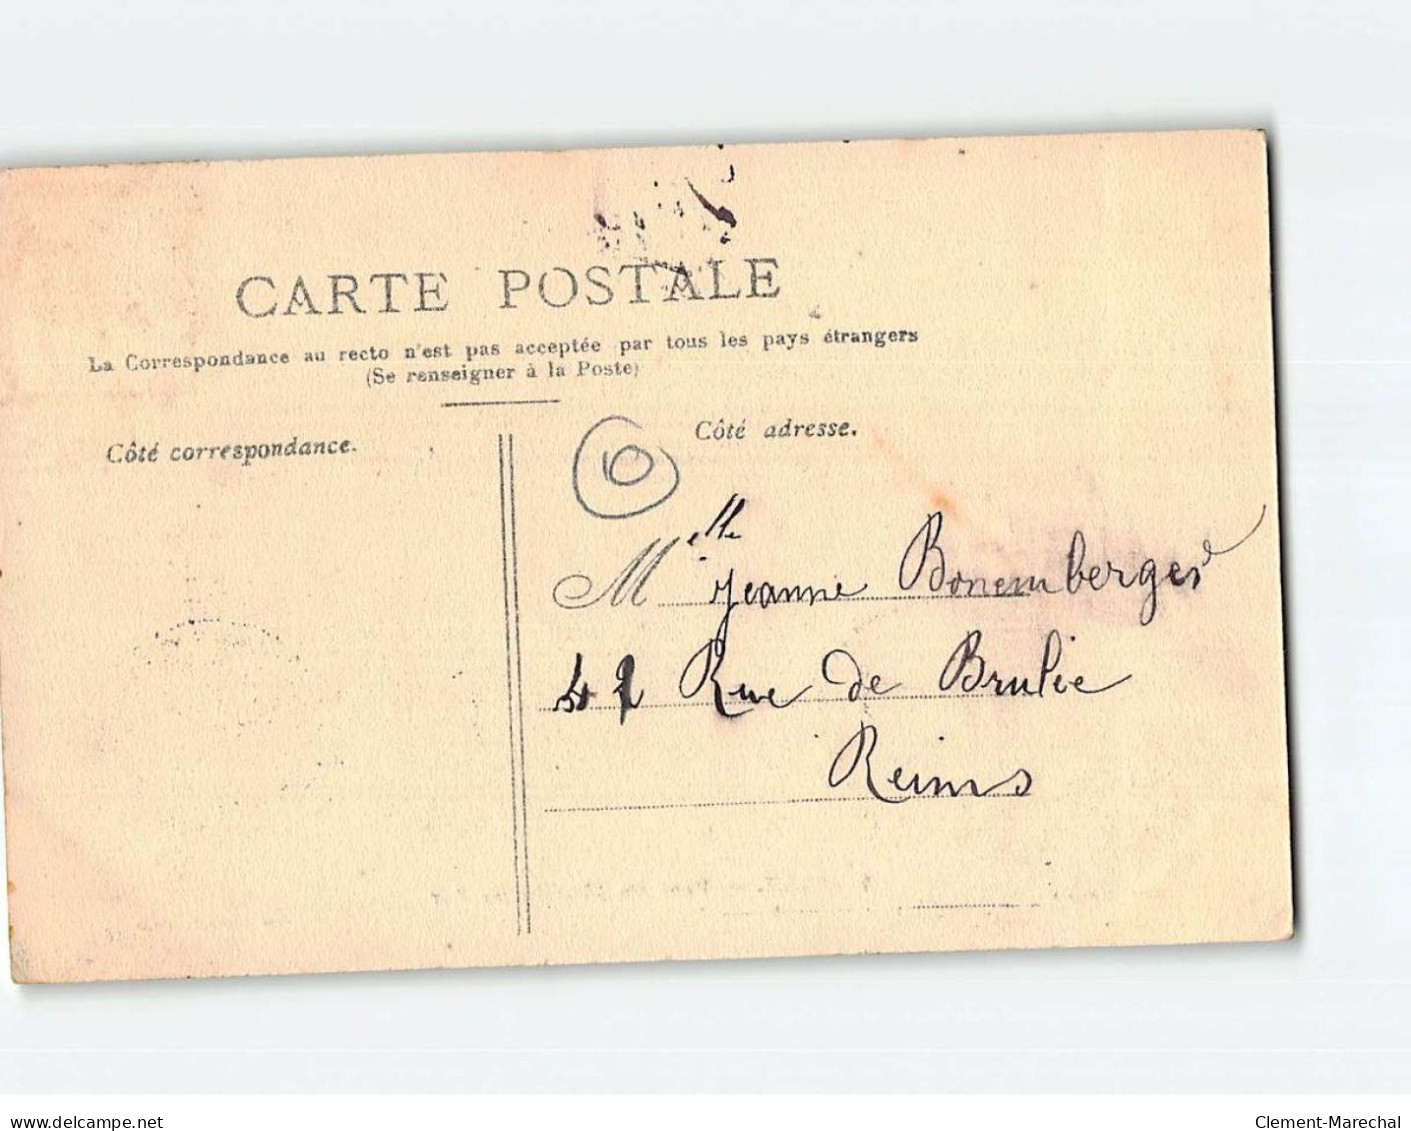 CARTE POSTALE
La Correspondance au recto n'est pas acceptée par tous les pays étrangers
(Se renseigner à la Poste)
Côté correspondance.
Côté adresse.
10
Melle Jeanne Bonemberger
42 Rue de Brulée
Reims
www.delcampe.net
Clement-Marechal